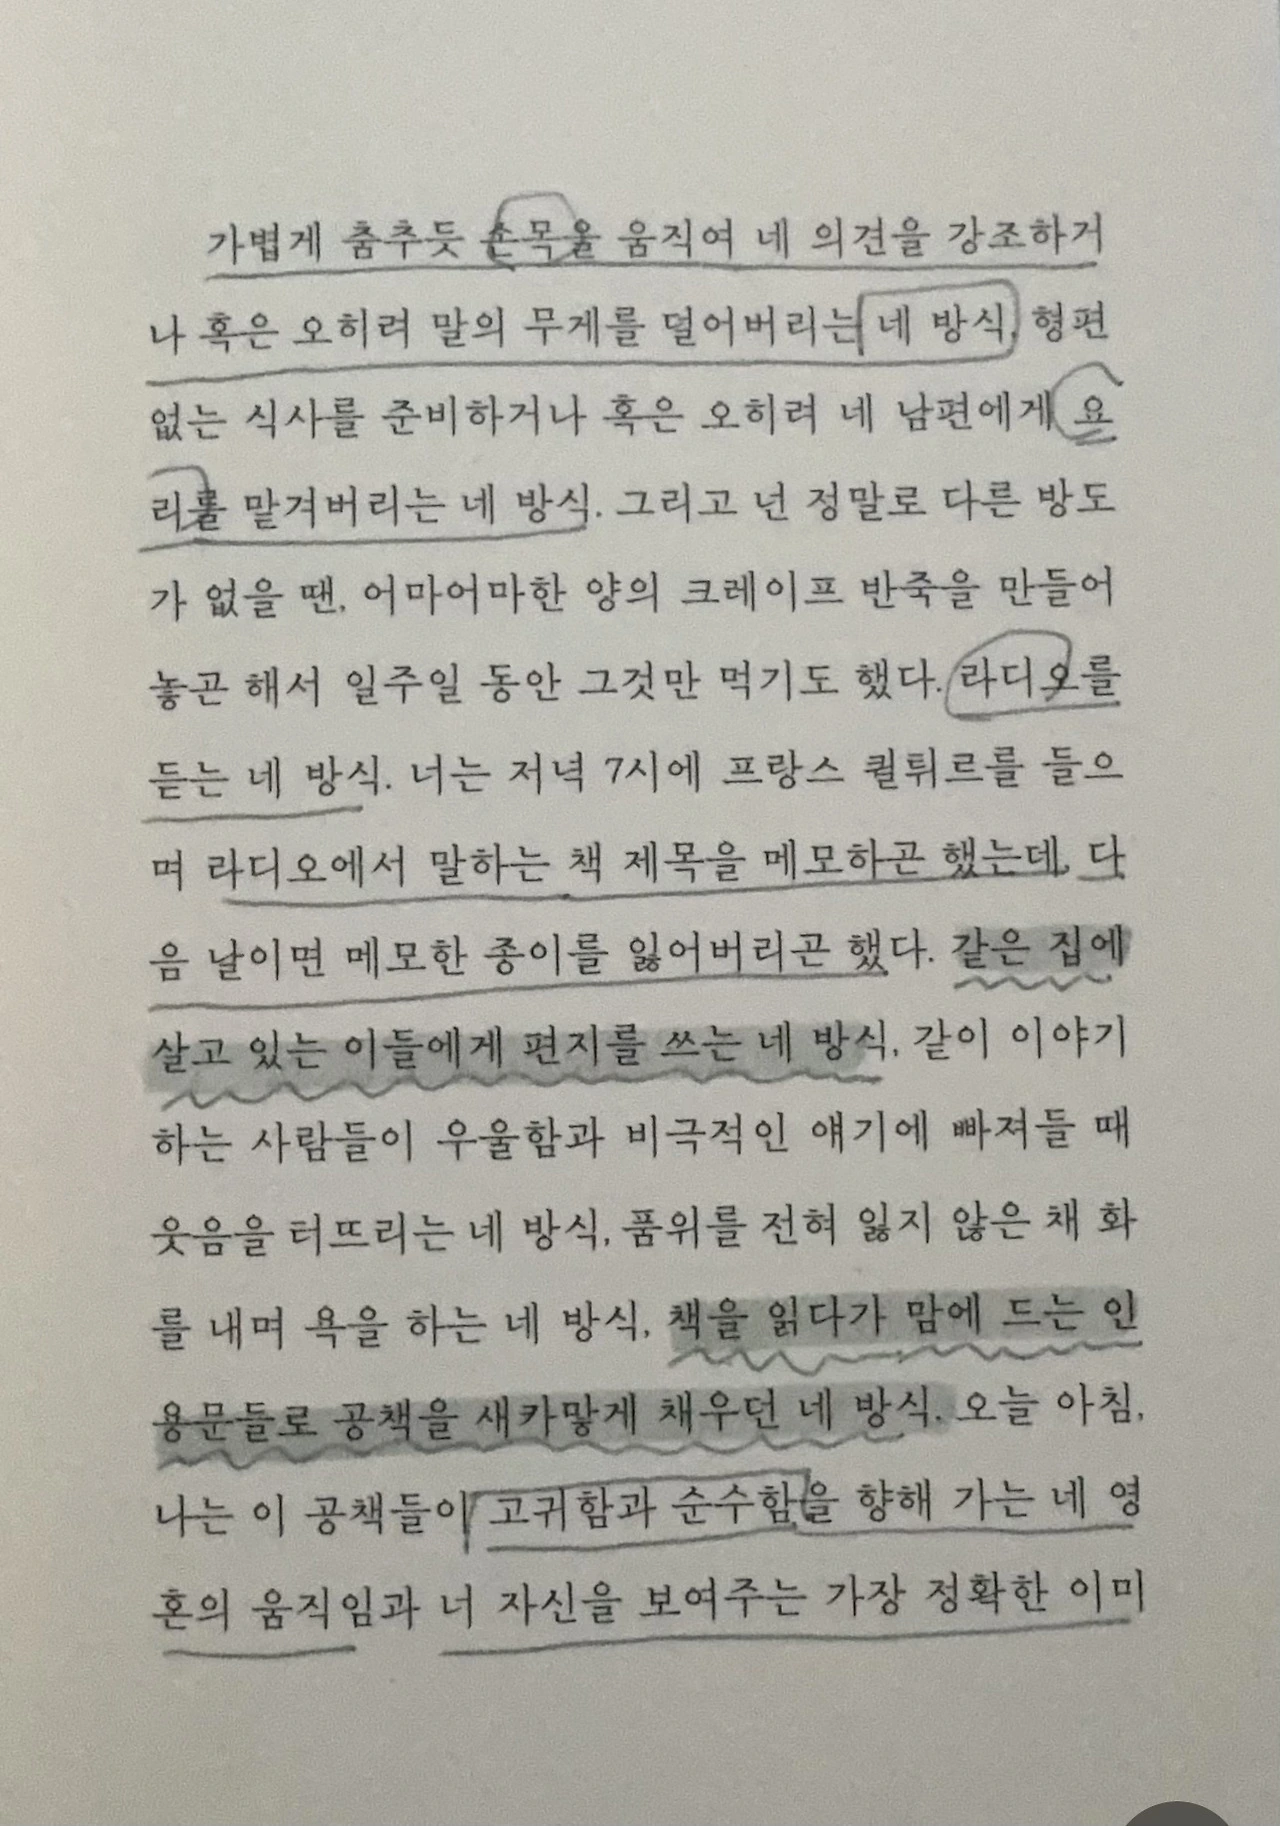 가볍게 춤추듯 손목을 움직여 네 의견을 강조하거
나 혹은 오히려 말의 무게를 덜어버리는 네 방식, 형편
없는 식사를 준비하거나 혹은 오히려 네 남편에게 요
리를 맡겨버리는 네 방식. 그리고 넌 정말로 다른 방도
가 없을 땐, 어마어마한 양의 크레이프 반죽을 만들어
놓곤 해서 일주일 동안 그것만 먹기도 했다. 라디오를
듣는 네 방식. 너는 저녁 7시에 프랑스 퀼튀르를 들으
며 라디오에서 말하는 책 제목을 메모하곤 했는데, 다
음 날이면 메모한 종이를 잃어버리곤 했다. 같은 집에
살고 있는 이들에게 편지를 쓰는 네 방식, 같이 이야기
하는 사람들이 우울함과 비극적인 얘기에 빠져들 때
웃음을 터뜨리는 네 방식, 품위를 전혀 잃지 않은 채 화
를 내며 욕을 하는 네 방식, 책을 읽다가 맘에 드는 인
용문들로 공책을 새카맣게 채우던 네 방식. 오늘 아침,
나는 이 공책들이 고귀함과 순수함을 향해 가는 네 영
혼의 움직임과 너 자신을 보여주는 가장 정확한 이미